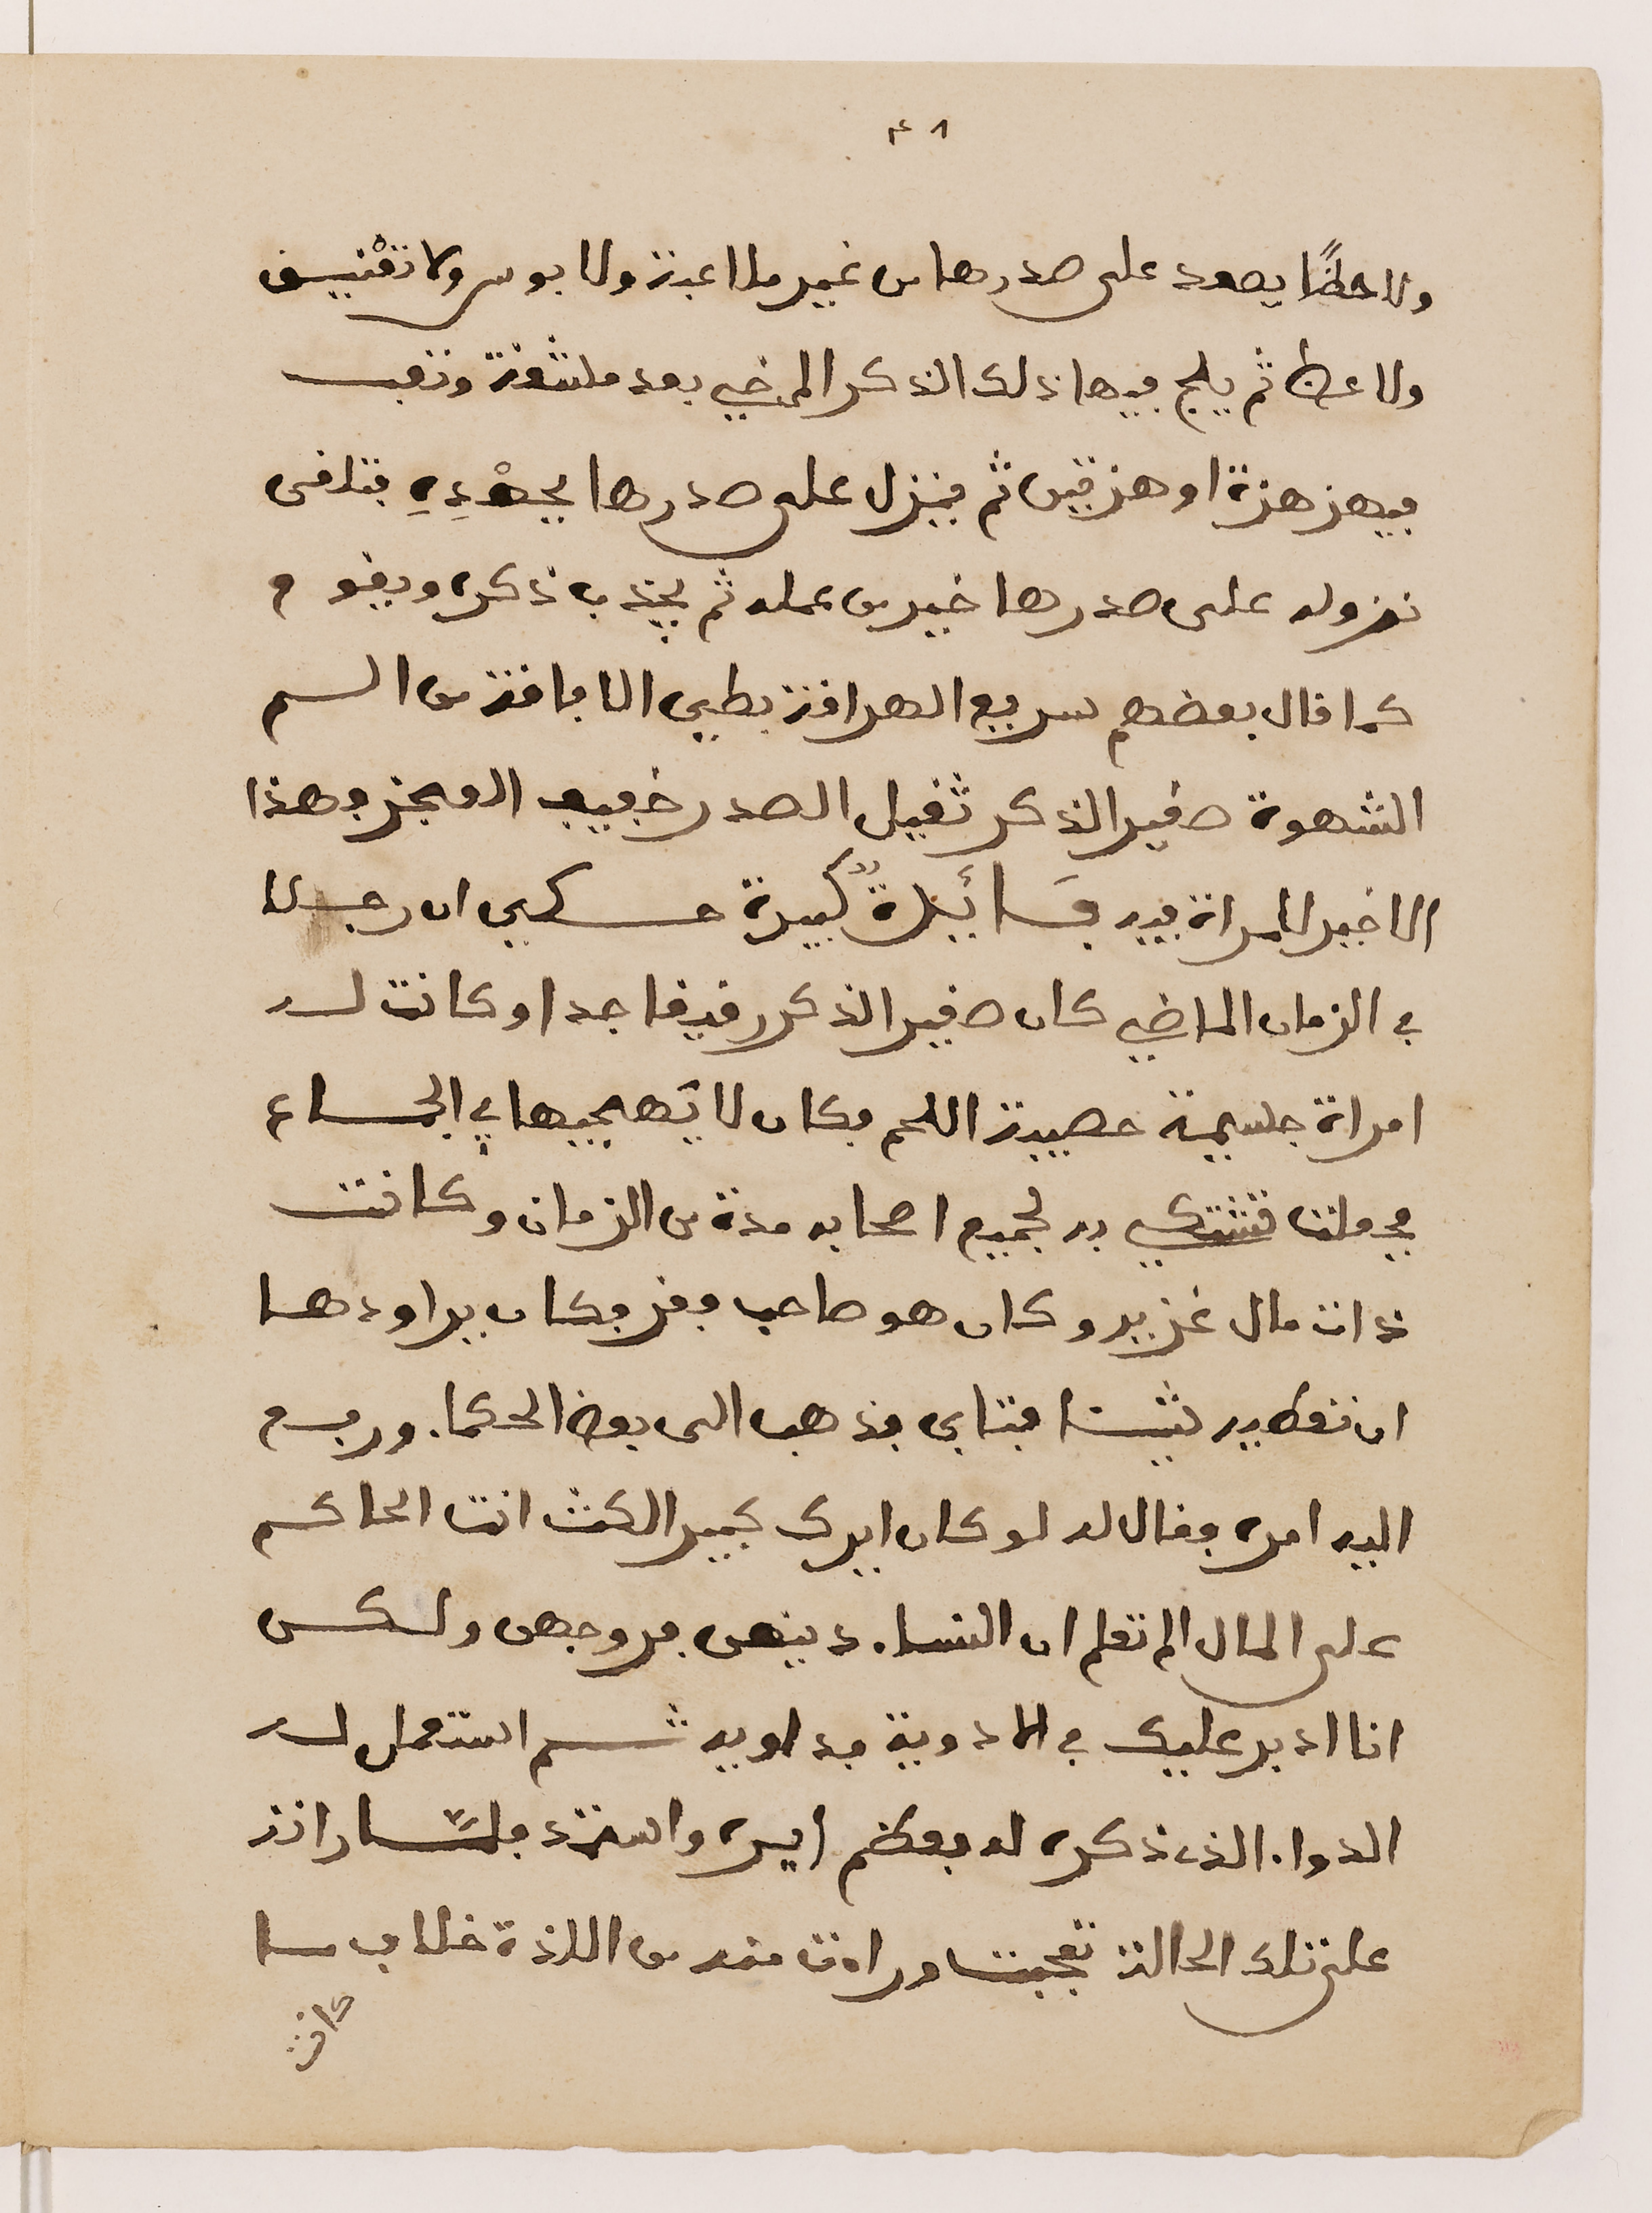 ٤٨
ولا حظًا يصعد على صدرها من غير ملاعبة ولا بوس ولا تعنيق
ولا عظ ثم يلج فيها ذلك الذكر المرخي بعد مشقة وتعب
فيهز هزة او هزتين ثم ينزل على صدرها
نزوله على صدرها خير من عمله ثم يجذب ذكره ويقوم
كما قال بعضهم سريع الهراقة بطي الافاقة من السم
الشهوة صغير الذكر ثقيل الصدر خفيف العجز فهذا
الاخير للمراة فيه فسائلة كبيرة حكي ان رجلا
في الزمان الماضي كان صغير الذكر رقيقا جدا وكانت له
امراة جسيمة خصيبة اللحم فكان لا يهجيها في الجماع
فجعلت تشتكي به لجميع اصحابه مدة من الزمان وكانت
ذات مال غزير وكان هو صاحب فقر فكان يراودها
ان تعطيه شيئا فتابى فذهب الى بعض الحكماء ورفع
اليه امره فقال له لو كان ايرك كبير الكنت انت الحاكم
على المال الم تعلم ان النساء دينهن فروجهن ولكن
انا ادبر عليك في الادوية فداويه ثم استعمل له
الدواء الذي ذكره له فعظم ايره واشتد فلما راته
على تلك الحالة تعجبت وراءت منه من اللذة خلاف ما
كانت